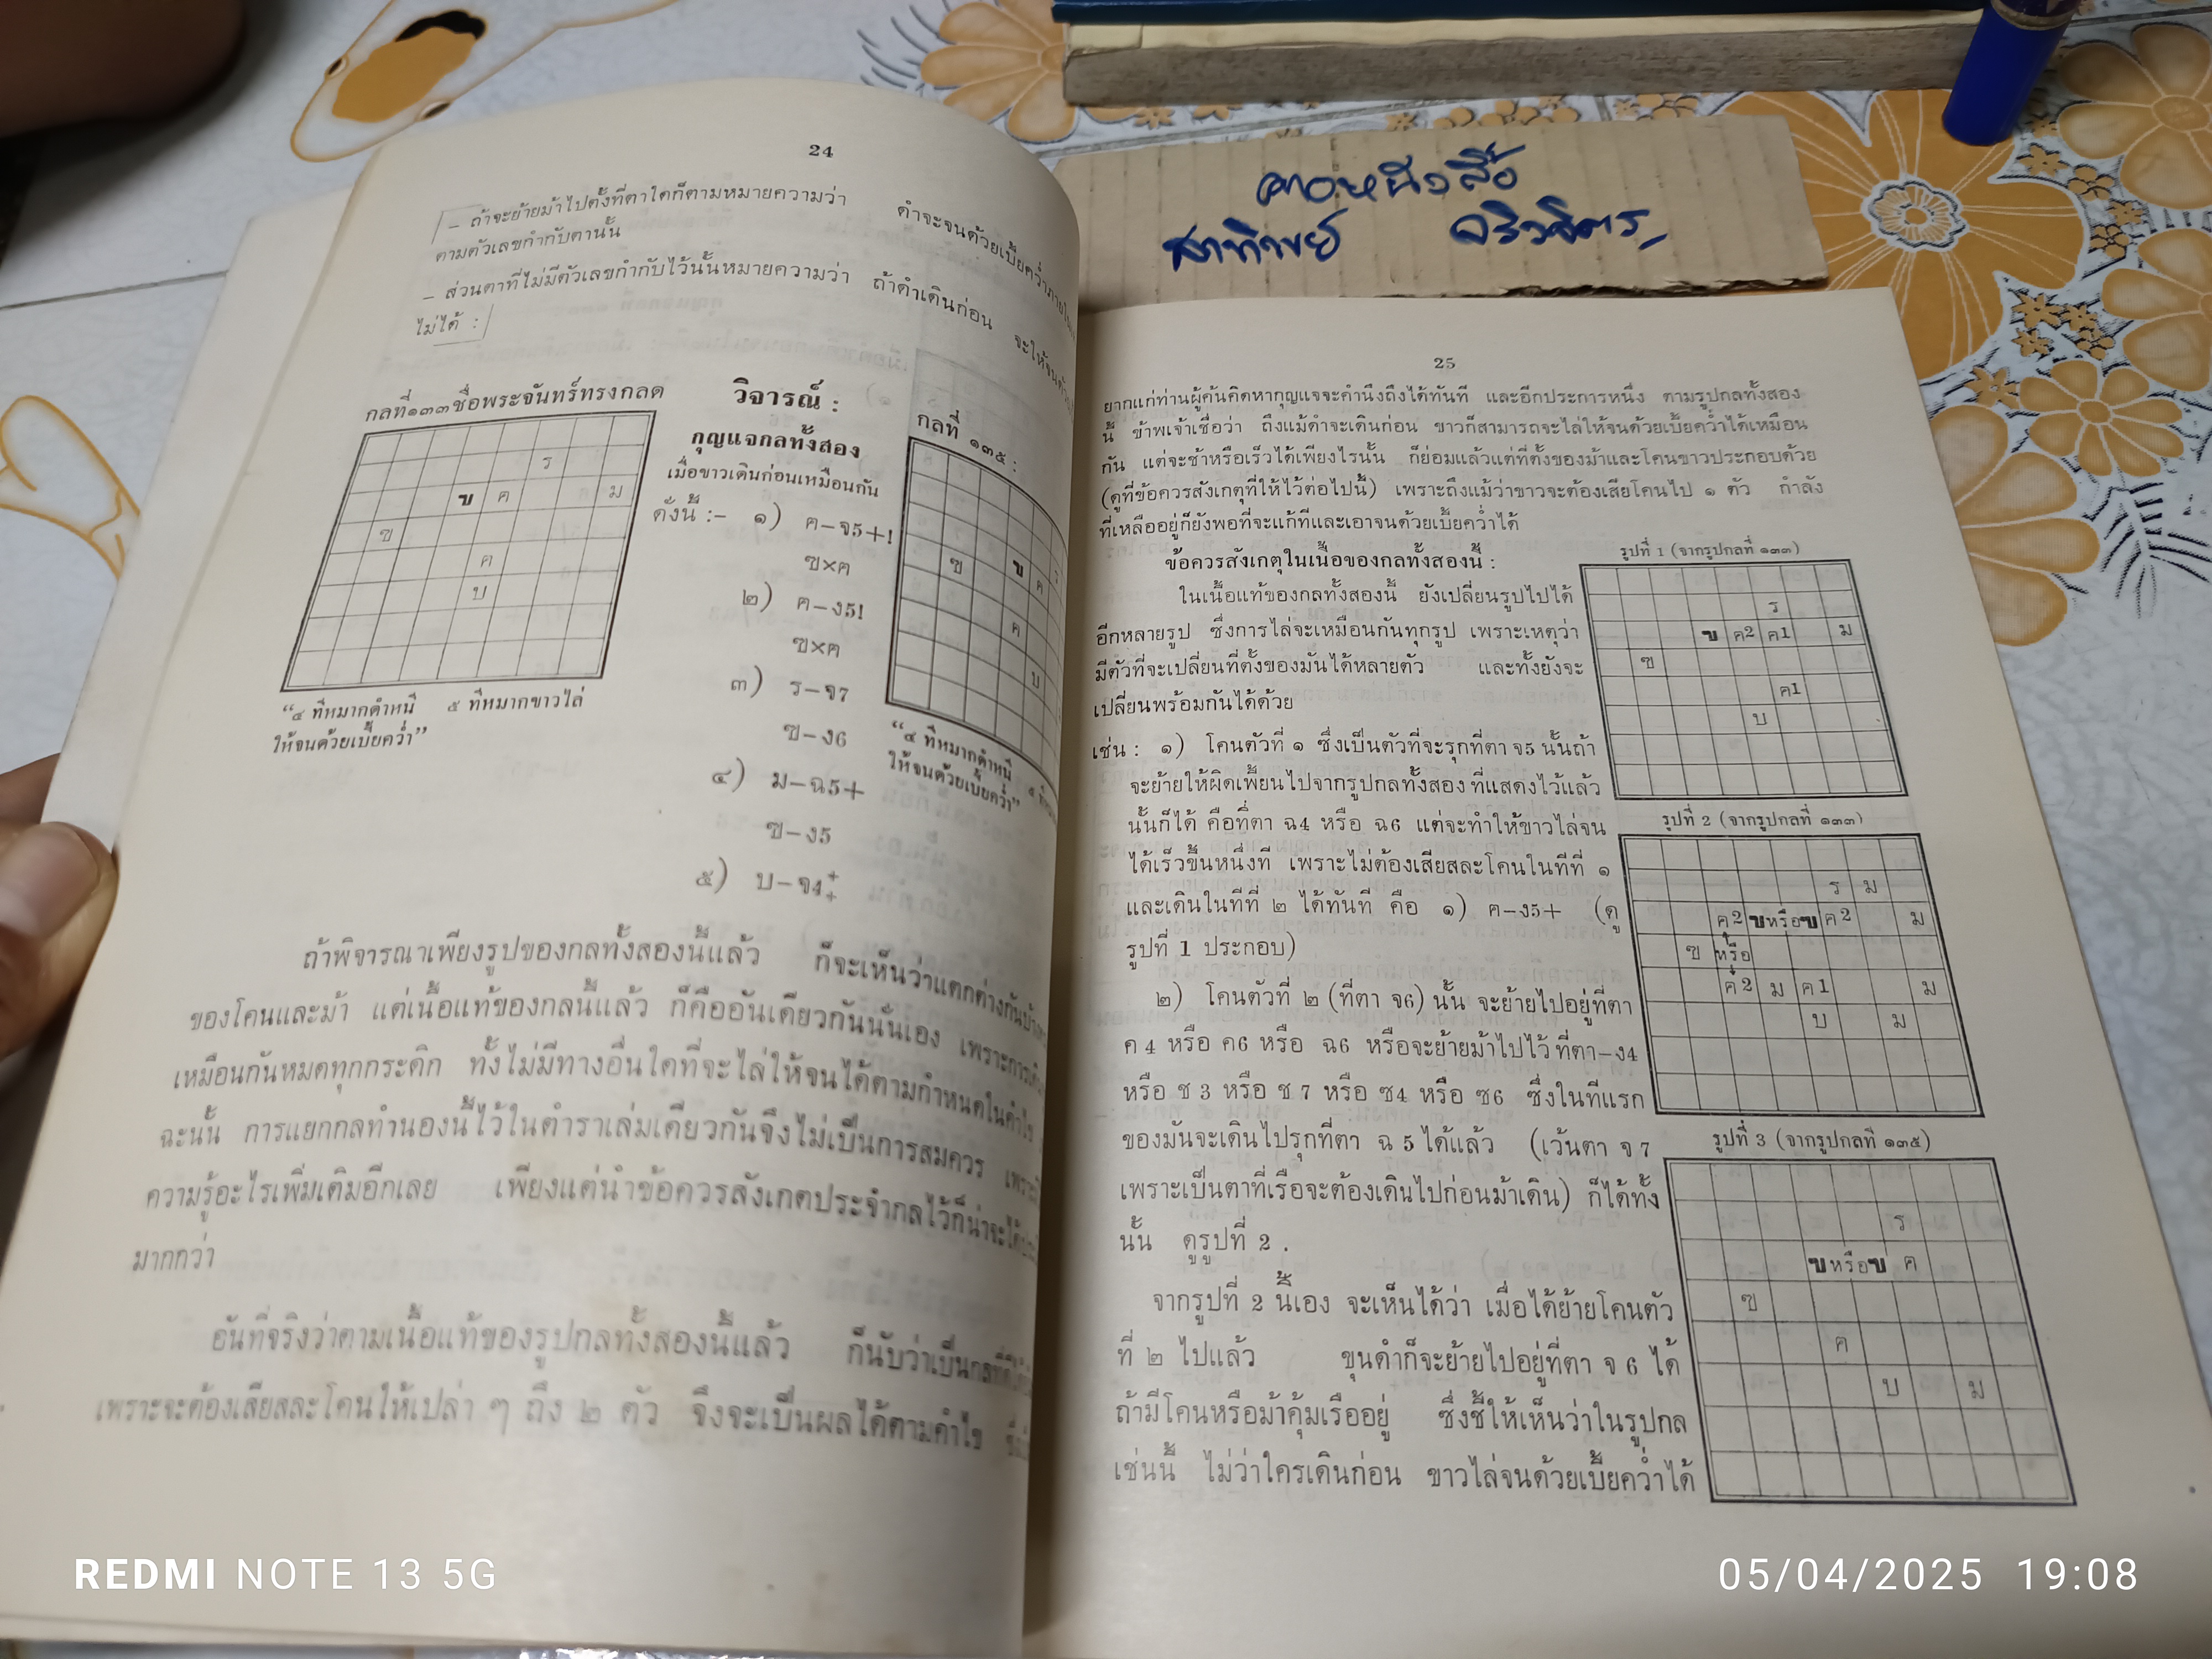 24
– ถ้าจะย้ายม้าไปตั้งที่ตาใดก็ตามหมายความว่า ดำจะจนด้วยเบี้ยคว่ำภายใน
ตามตัวเลขกำกับตานั้น
– ส่วนตาที่ไม่มีตัวเลขกำกับไว้นั้นหมายความว่า ถ้าดำเดินก่อน จะให้จนด้วย
ไม่ได้ :
กลที่๑๓๓ชื่อพระจันทร์ทรงกลด
ร
ข ค ม
ฃ
ค
บ
“๔ ทีหมากดำหนี ๕ ทีหมากขาวไล่
ให้จนด้วยเบี้ยคว่ำ”
วิจารณ์ :
กุญแจกลทั้งสอง
เมื่อขาวเดินก่อนเหมือนกัน
ดังนี้ :– ๑) ค–จ5+!
ฃ×ค
๒) ค–ง5!
ฃ×ค
๓) ร–จ7
ฃ–ง6
๔) ม–ฉ5+
ฃ–ง5
๕) บ–จ4++
กลที่ ๑๓๕ :
ฃ ข ค ร
ค
บ
“๔ ทีหมากดำหนี
ให้จนด้วยเบี้ยคว่ำ”
ถ้าพิจารณาเพียงรูปของกลทั้งสองนี้แล้ว ก็จะเห็นว่าแตกต่างกันบ้าง
ของโคนและม้า แต่เนื้อแท้ของกลนี้แล้ว ก็คืออันเดียวกันนั่นเอง เพราะการ
เหมือนกันหมดทุกกระดิก ทั้งไม่มีทางอื่นใดที่จะไล่ให้จนได้ตามกำหนดในคำไข
ฉะนั้น การแยกกลทำนองนี้ไว้ในตำราเล่มเดียวกันจึงไม่เป็นการสมควร
ความรู้อะไรเพิ่มเติมอีกเลย เพียงแต่นำข้อควรสังเกตประจำกลไว้ก็น่าจะได้
มากกว่า
อันที่จริงว่าตามเนื้อแท้ของรูปกลทั้งสองนี้แล้ว ก็นับว่าเป็นกลที่ดี
เพราะจะต้องเสียสละโคนให้เปล่า ๆ ถึง ๒ ตัว จึงจะเป็นผลได้ตามคำไข
คอหนังสือ
25
ยากแก่ท่านผู้ค้นคิดหากุญแจจะคำนึงถึงได้ทันที และอีกประการหนึ่ง ตามรูปกลทั้งสอง
นี้ ข้าพเจ้าเชื่อว่า ถึงแม้ดำจะเดินก่อน ขาวก็สามารถจะไล่ให้จนด้วยเบี้ยคว่ำได้เหมือน
กัน แต่จะช้าหรือเร็วได้เพียงไรนั้น ก็ย่อมแล้วแต่ที่ตั้งของม้าและโคนขาวประกอบด้วย
(ดูที่ข้อควรสังเกตุที่ให้ไว้ต่อไปนี้) เพราะถึงแม้ว่าขาวจะต้องเสียโคนไป ๑ ตัว กำลัง
ที่เหลืออยู่ก็ยังพอที่จะแก้ทีและเอาจนด้วยเบี้ยคว่ำได้
ข้อควรสังเกตุในเนื้อของกลทั้งสองนี้ :
ในเนื้อแท้ของกลทั้งสองนี้ ยังเปลี่ยนรูปไปได้
อีกหลายรูป ซึ่งการไล่จะเหมือนกันทุกรูป เพราะเหตุว่า
มีตัวที่จะเปลี่ยนที่ตั้งของมันได้หลายตัว และทั้งยังจะ
เปลี่ยนพร้อมกันได้ด้วย
เช่น : ๑) โคนตัวที่ ๑ ซึ่งเป็นตัวที่จะรุกที่ตา จ5 นั้นถ้า
จะย้ายให้ผิดเพี้ยนไปจากรูปกลทั้งสอง ที่แสดงไว้แล้ว
นั้นก็ได้ คือที่ตา ฉ4 หรือ ฉ6 แต่จะทำให้ขาวไล่จน
ได้เร็วขึ้นหนึ่งที เพราะไม่ต้องเสียสละโคนในทีที่ ๑
และเดินในทีที่ ๒ ได้ทันที คือ ๑) ค–ง5+ (ดู
รูปที่ 1 ประกอบ)
๒) โคนตัวที่ ๒ (ที่ตา จ6) นั้น จะย้ายไปอยู่ที่ตา
ค 4 หรือ ค6 หรือ ฉ6 หรือจะย้ายม้าไปไว้ ที่ตา–ง4
หรือ ช 3 หรือ ช 7 หรือ ซ4 หรือ ซ6 ซึ่งในทีแรก
ของมันจะเดินไปรุกที่ตา ฉ 5 ได้แล้ว (เว้นตา จ 7
เพราะเป็นตาที่เรือจะต้องเดินไปก่อนม้าเดิน) ก็ได้ทั้ง
นั้น ดูรูปที่ 2 .
จากรูปที่ 2 นี้เอง จะเห็นได้ว่า เมื่อได้ย้ายโคนตัว
ที่ ๒ ไปแล้ว ขุนดำก็จะย้ายไปอยู่ที่ตา จ 6 ได้
ถ้ามีโคนหรือม้าคุ้มเรืออยู่ ซึ่งชี้ให้เห็นว่าในรูปกล
เช่นนี้ ไม่ว่าใครเดินก่อน ขาวไล่จนด้วยเบี้ยคว่ำได้
รูปที่ 1 (จากรูปกลที่ ๑๓๓)
ร
ข ค2 ค1 ม
ฃ
ค1
บ
รูปที่ 2 (จากรูปกลที่ ๑๓๓)
ร ม
ค2 ขหรือข ค2 ม
ฃ หรือ
ค2 ม ค1 ม
บ ม
รูปที่ 3 (จากรูปกลที่ ๑๓๕)
ร
ขหรือข ค
ฃ
ค
บ ม
REDMI NOTE 13 5G
05/04/2025 19:08